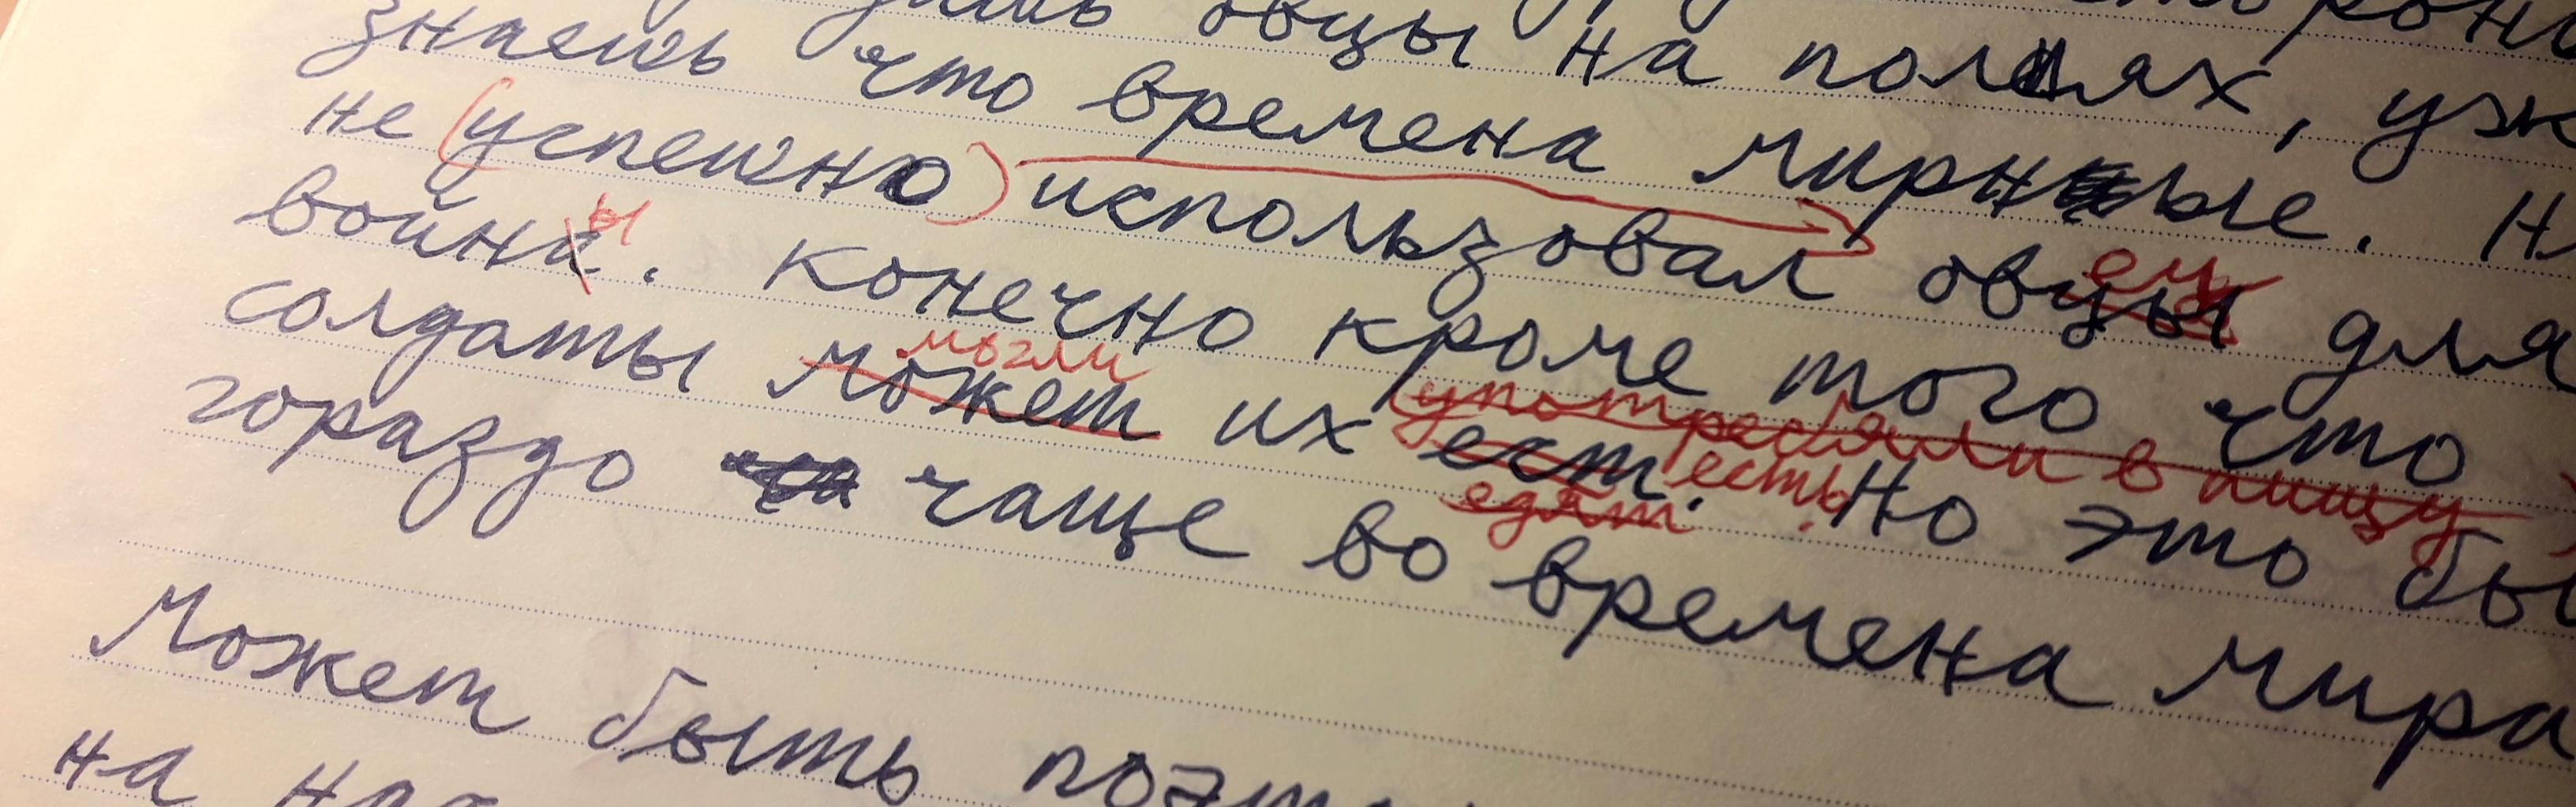 овцы на полях, уж
знаешь что времена мирные. Н
не (успешно) использовал овцы ец для
война ы. конечно кроме того что
солдаты может могли их ест. употребляли в пищу едят есть. Но это бы
гораздо чаще во времена мира
Может быть
на